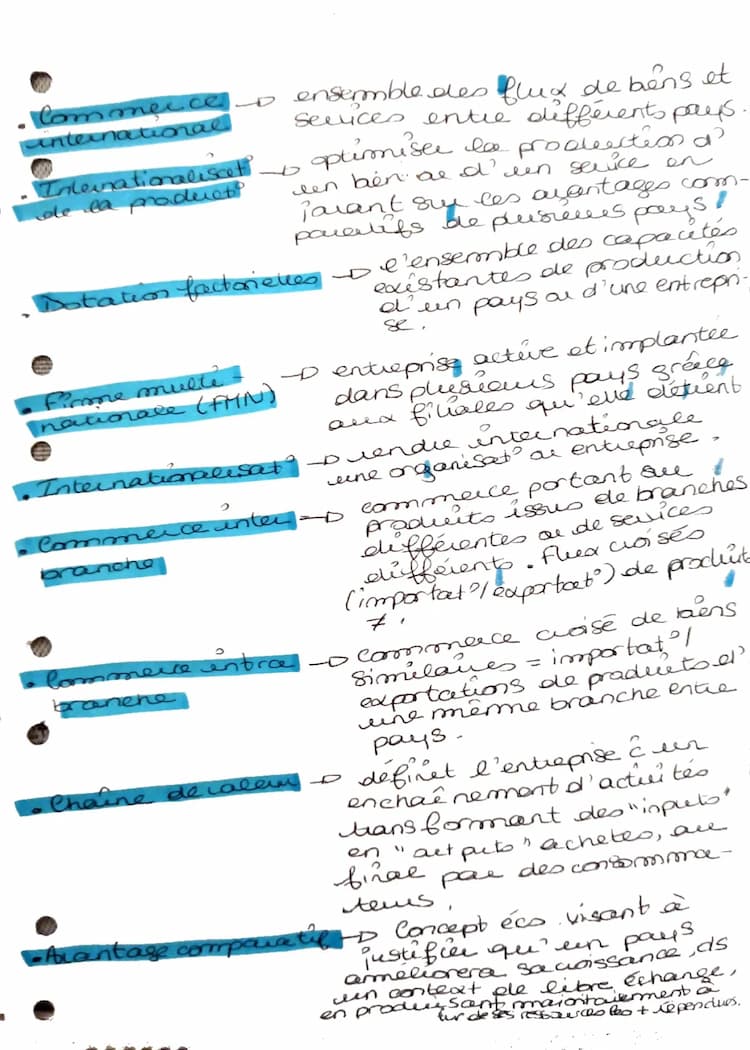 . Commerce international → ensemble des flux de biens et
services entre différents pays.
. Internationalisat° de la product° → optimiser la production d'
un bien ou d'un service en
jouant sur les avantages com-
paratifs de plusieurs pays !
. Dotation factorielles → l'ensemble des capacités
existantes de production
d'un pays ou d'une entrepri-
se.
. Firme multi-
nationale (FMN) → entreprise active et implantée
dans plusieurs pays grâce
aux filiales qu'elle détient
. Internationalisat° → rendre internationale
une organisat° ou entreprise.
. Commerce inter
branche → commerce portant sur
produits issus de branches
différentes ou de services
différent. Flux croisés
(importat°/exportat°) de produit
≠.
. Commerce intra
branche → commerce croisé de biens
similaires = importat°/
exportations de produits d'
une même branche entre
pays.
. Chaîne de valeur → définit l'entreprise c un
enchaînement d'activités
transformant des "inputs"
en "outputs" achetés, au
final par des consomma-
teurs.
. Avantage comparatif → Concept éco visant à
justifier qu'un pays
améliorera sa croissance, ds
un context de libre échange,
en produisant majoritairement à
de ses ressources les + répendues.